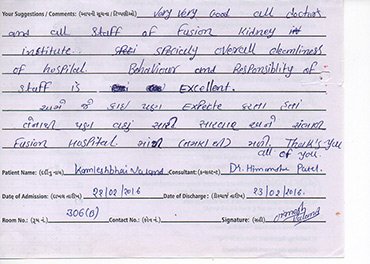 Your Suggestions / Comments: (આપની સૂચના / ટિપ્પણીઓ) Very Very Good all doctors
and all staff of Fusion Kidney
institute. specialy overall cleanliness
of hospital. Behaviour and Responsiblity of
staff is Excellent.
અમે જે કાંઇ પણ Expecte કરતા હતા
તેનાથી પણ વધુ સારી સારવાર અમને
Fusion Hospital. માંથી મળી. Thank's you
all of you.
Patient Name: (દર્દીનું નામ) Kamleshbhai Valand Consultant: (કન્સલ્ટન્ટ) Dr. Himanshu Patel.
Date of Admission: (દાખલ તારીખ) 22/02/2016 Date of Discharge: (ડિસ્ચાર્જ તારીખ) 23/02/2016.
Room No.: (રૂમ નં.) 306(D) Contact No.: (ફોન નં.) Signature: (સહી)